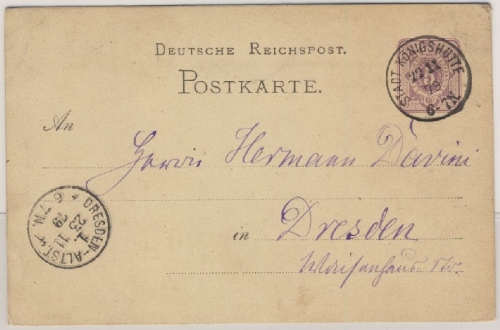 DEUTSCHE REICHSPOST.
POSTKARTE.
STADT KÖNIGSHÜTTE
22 11
6-7N
An
Herrn Hermann Davini
DRESDEN-ALTST.
23
11
79
6-7N.
in Dresden
Waisenhaus Str.